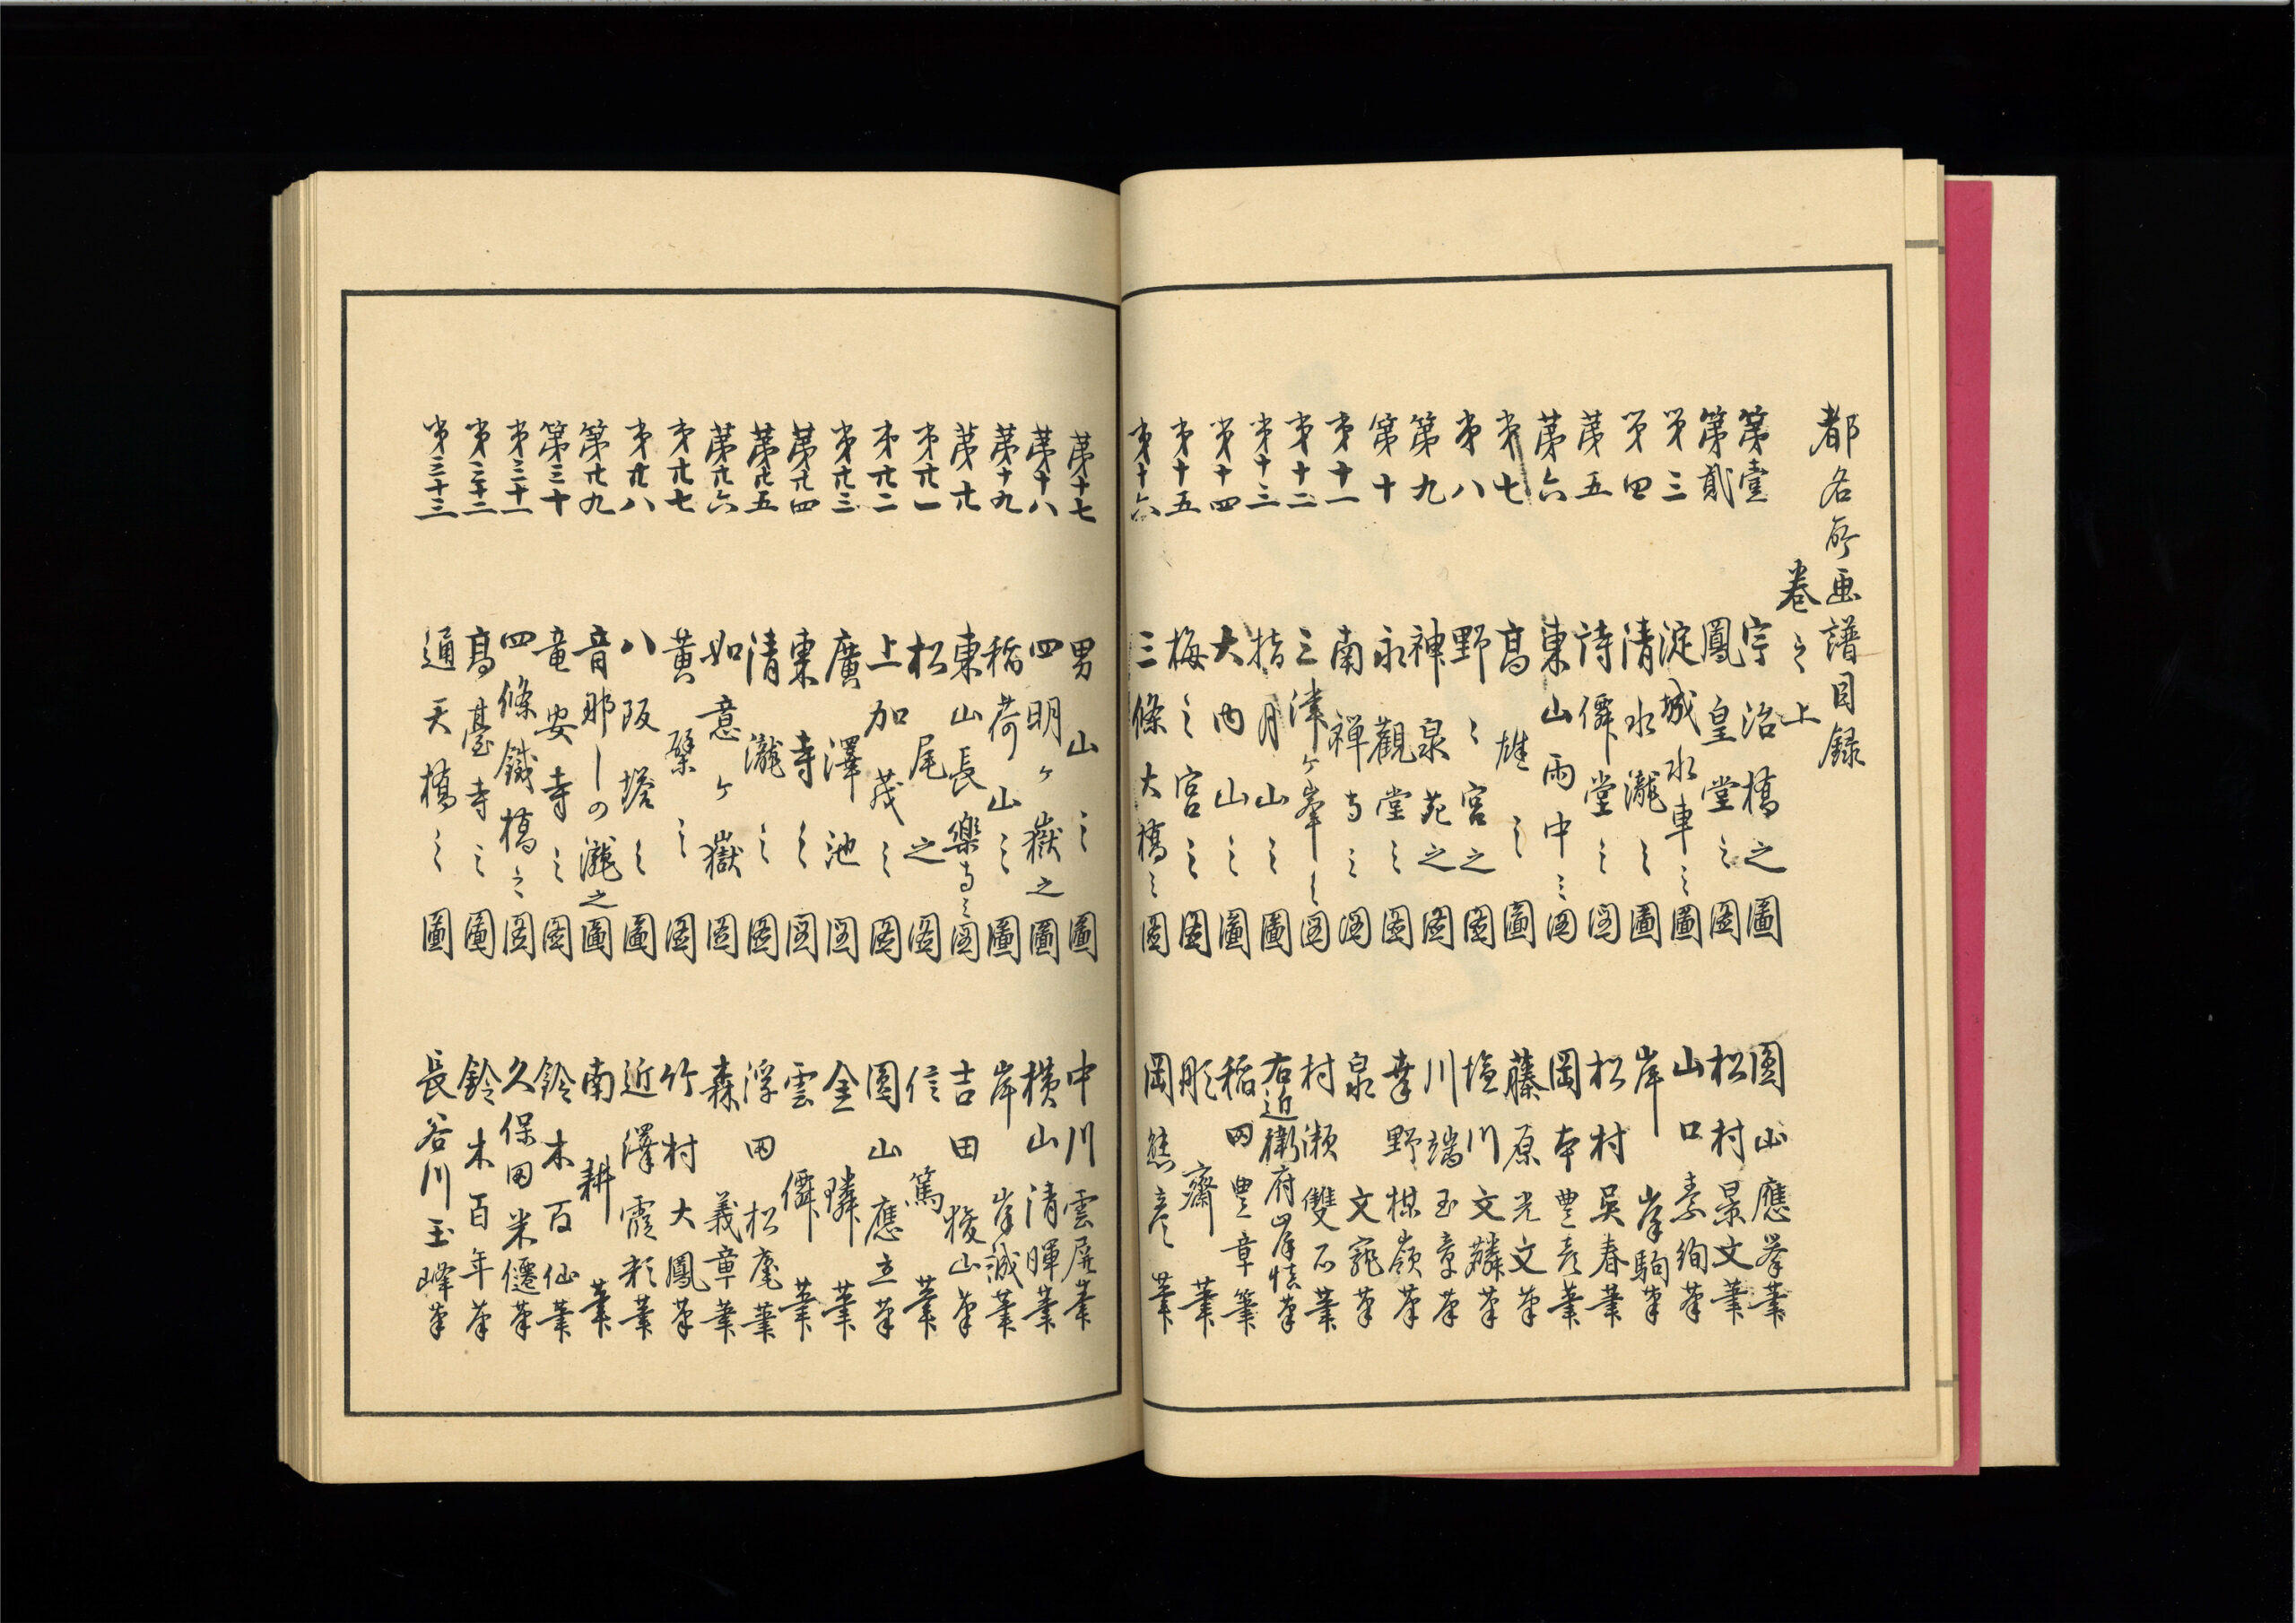 都名所画譜目録
巻之上
第壹 宗治橋之圖 圓山應挙筆
第貳 鳳皇堂之圖 松村景文筆
第三 淀城水車之圖 山口素絢筆
第四 清水瀧之圖 岸岸駒筆
第五 詩僊堂之圖 松村呉春筆
第六 東山雨中之圖 岡本豊彦筆
第七 高雄之圖 藤原光文筆
第八 野々宮之圖 塩川文麟筆
第九 神泉苑之圖 川端玉章筆
第十 永觀堂之圖 幸野楳嶺筆
第十一 南禅寺之圖 泉文
第十二 三津ヶ峯之圖 村瀬雙石筆
第十三 指月山之圖 右近衛府岸慎筆
第十四 大内山之圖 稲田豊章筆
第十五 梅之宮之圖 彫齋筆
第十六 三條大橋之圖 岡熊彦筆
第十七 男山之圖 中川雲屏筆
第十八 四明ヶ嶽之圖 横山清暉筆
第十九 稲荷山之圖 岸岸誠筆
第廿 東山長樂寺之圖 吉田稜山筆
第廿一 松尾之圖 信篤筆
第廿二 上加茂之圖 圓山應立筆
第廿三 廣澤池圖 金麟筆
第廿四 東寺之圖 雲僊筆
第廿五 清瀧之圖 浮田松庵筆
第廿六 如意ヶ嶽圖 森義章筆
第廿七 黄檗之圖 竹村大鳳筆
第廿八 八阪塔之圖 近澤霞彩筆
第廿九 音那しの瀧之圖 南耕筆
第三十 竜安寺之圖 鈴木百仙筆
第三十一 四條鐵橋之圖 久保田米僊筆
第三十二 髙臺寺之圖 鈴木百年筆
第三十三 通天橋之圖 長谷川玉峰筆